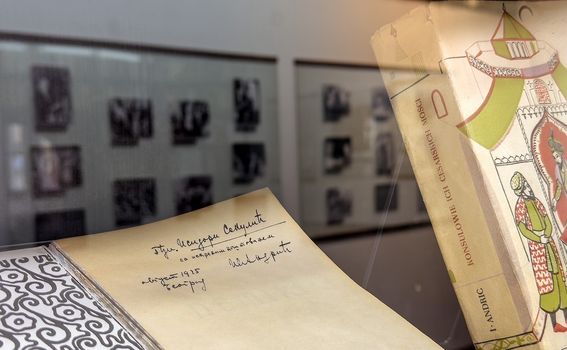 Исидори Секулић
са поштовањем
Андрић
август
Београд
I· ANDRIĆ KONSULOWIE ICH CESARSKICH MOŚCI